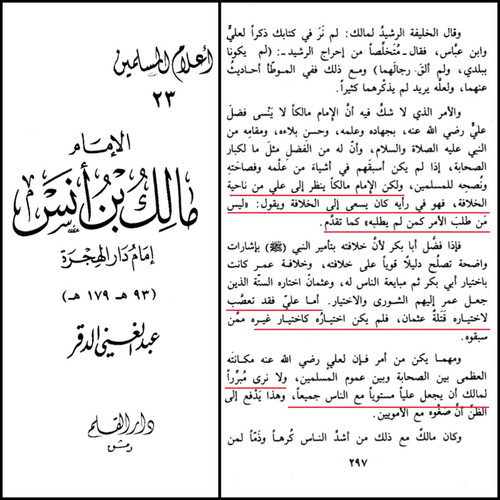 أعلام المسلمين
٢٣
الإمام
مالك بن أنس
إمام دار الهجرة
(٩٣ هـ - ١٧٩ هـ)
عبد الغني الدقر
دار القلم
دمشق
وقال الخليفة الرشيدُ لمالك: لم نَرَ في كتابك ذكراً لعليٍّ
وابن عبَّاس، فقال ـ مُتَخلِّصاً من إحراج الرشيد ـ: (لم يكونا
ببلدي، ولم ألقَ رجالَهما) ومع ذلك ففي الموطَّأ أحاديثُ
عنهما، ولعلَّه يريد لم يذكُرهما كثيراً.
والأمر الذي لا شكَّ فيه أنَّ الإمام مالكاً لا يَنْسى فضلَ
عليٍّ رضي الله عنه، بجهاده وعلمه، وحسنِ بلاءه، ومقامِه من
النبي عليه الصلاة والسلام، وأنّ له من الفَضل مثلَ ما لكبار
الصحابة، إذا لم يكن أسبقَهم في أشياءَ من عِلمه وفصاحتِه
ونُصحِه للمسلمين، ولكن الإمام مالكاً ينظر إلى علي من ناحية
الخلافة، فهو في رأيه كان يسعى إلى الخلافة ويقول: «ليس
مَن طلبَ الأمرَ كمن لم يطلبه» كما تقدَّم.
فإذا فضَّل أبا بكر لأنَّ خلافته بتأمير النبي (ﷺ) بإشارات
واضحة تصلُح دليلاً قوياً على خلافته، وخلافة عمر كانت
باختيار أبي بكر ثم مبايعة الناس له، وعثمان اختاره الستّة الذين
جعل عمر إليهم الشورى والاختيار. أما عليّ فقد تعصَّب
لاختياره قَتَلةُ عثمان، فلم يكن اختيارُه كاختيار غيره ممَّن
سبقوه.
ومهما يكن من أمر فإن لعلي رضي الله عنه مكانَتَه
العظمى بين الصحابة وبين عموم المسلمين، ولا نرى مُبرِّراً
لمالك أن يجعل علياً مستوياً مع الناس جميعاً، وهذا يَدْفع إلى
الظنِّ أنَّ صَغْوه مع الأمويين.
وكان مالكٌ مع ذلك من أشدِّ الناس كُرهاً وذَمّاً لمن
٢٩٧